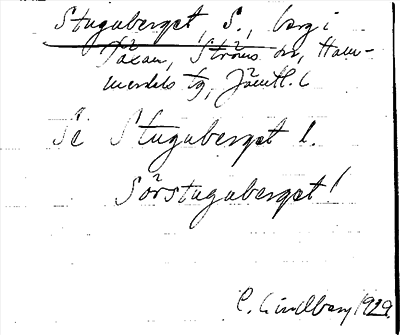 Stuguberget, S., berg i
Täxan, Ströms sn, Ham-
merdals tg, Jämtl. l
Se Stuguberget l.
Sörstuguberget l
C. Lindberg 1929.